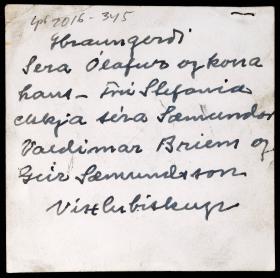 Lpf 2016-345
Hraungerði
Séra Ólafur og kona
hans - Frú Stefanía
ekkja séra Sæmundar
Valdimar Briem og
Geir Sæmundsson
Vixlubiskup